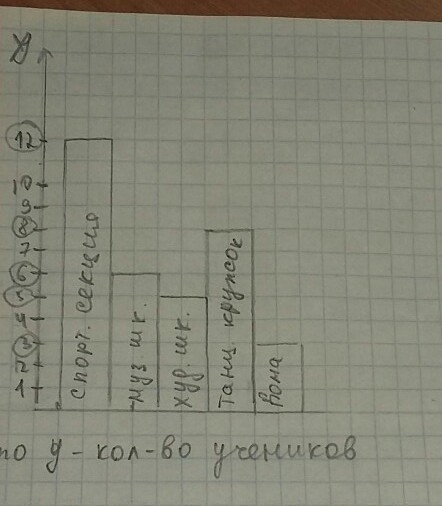 у
12
10
9
8
7
6
5
4
3
2
1
спорт. секция
муз. шк.
худ. шк.
танц. кружок
дома
по у - кол-во учеников